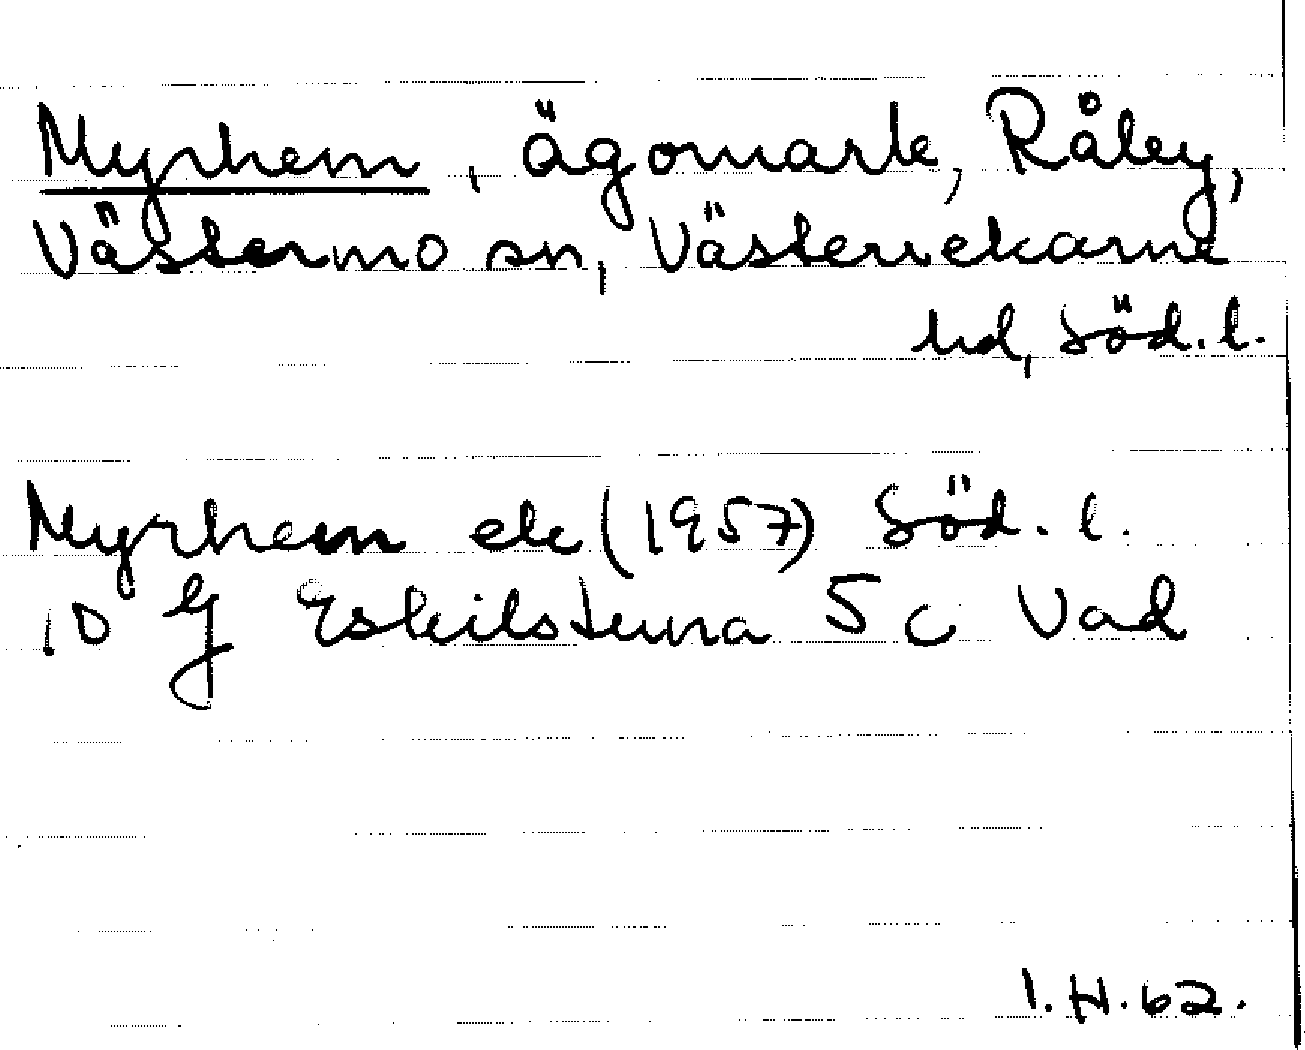 Myrhem, ägomark, Råby,
Västermo sn, Västerrekarne
hd, Söd. l.
Myrhem ek (1957) Söd. l.
10 G Eskilstuna 5 c Vad
I. H. 62.